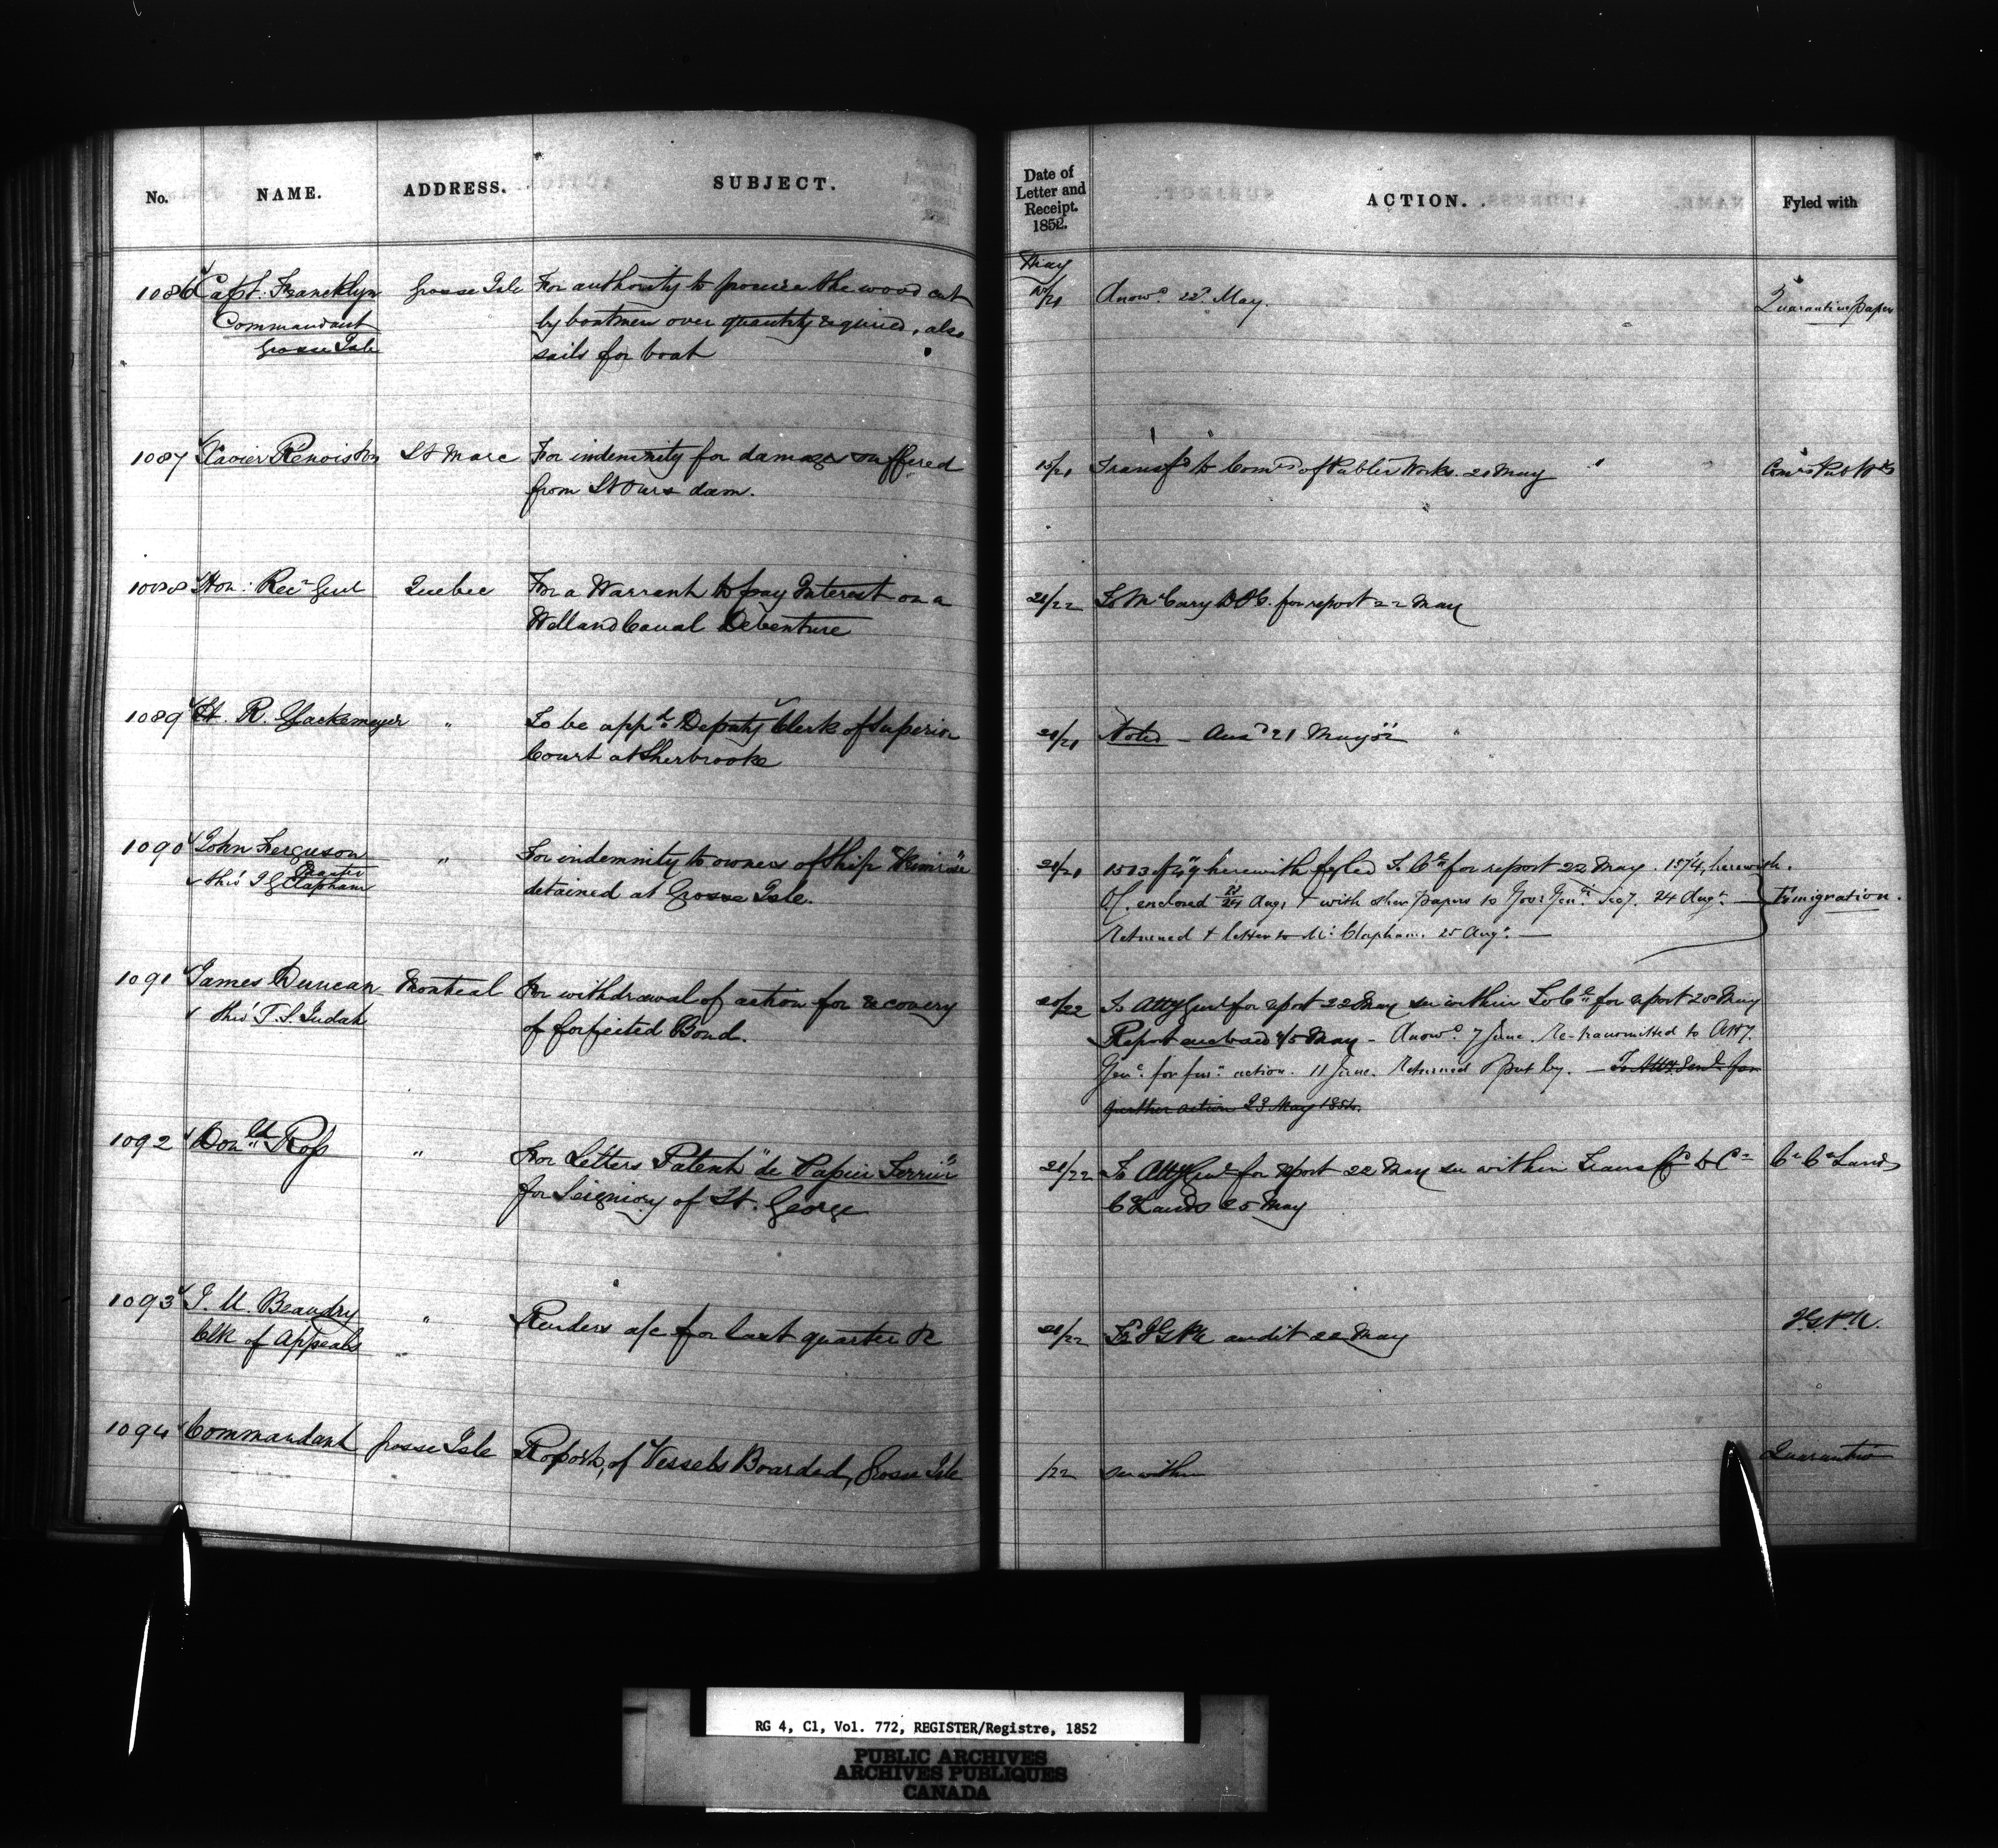 No. NAME. ADDRESS. SUBJECT. Date of Letter and Receipt. 1852. ACTION. Fyled with
May
1086 Capt. Francklyn Grosse Isle For authority to procure the wood cut 20/21 Answd. 22d May. Quarantine paper
Commandant by boatmen over quantity required, also
Grosse Isle sails for boat
1087 Xavier St Marc For indemnity for damages suffered 15/21 Transfd to Comrs of Public Works. 21 May Comrs Pub Wks
from St Ours dam.
1088 Hon: Recr Genl Quebec For a Warrant to pay Interest on a 21/22 To Mr Cary for report 22 May
Welland Canal Debenture
1089 R. Glackemeyer " To be appd. Deputy Clerk of Superior 21/21 Noted – Ansd 21 May
Court at Sherbrooke
1090 John Ferguson " For indemnity to owners of Ship "Primrose" 21/21 herewith fyled To for report 22 May. 1574, herewith.
Master
thro' J G Clapham detained at Grosse Isle. enclosed Augt & with other papers to Govr Genls Secy. 24 Augt. – Emigration.
Returned & letter to Mr Clapham. 25 Augt. —
1091 James Duncan Montreal For withdrawal of action for recovery 20/22 To Atty Genl for report 22 May see within To for report 28 May
thro' T. S. Judah of forfeited Bond. Report enclosed May – Answd. 7 June. Re-transmitted to Atty.
Genl. for furr. action. 11 June. Returned & put by. – To Atty. Genl. for
further action 23 May 1854.
1092 Donld Ross " For Letters Patent "de Papier Terrier" 21/22 To Atty Genl for report 22 May see within Transfd to Cr Cr Cn Lands
for Seigniory of St. George C Lands 25 May
1093 J. U. Beaudry " Renders a/c for last quarter 21/22 To audit 22 May
Clk of Appeals "
1094 Commandant Grosse Isle Report, of Vessels Boarded, Grosse Isle /22 see within Quarantine
RG 4, C1, Vol. 772, REGISTER/Registre, 1852
PUBLIC ARCHIVES
ARCHIVES PUBLIQUES
CANADA